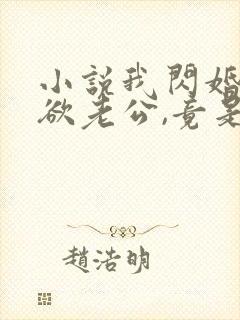 小說我閃婚
欲老公,竟是
趙浩明